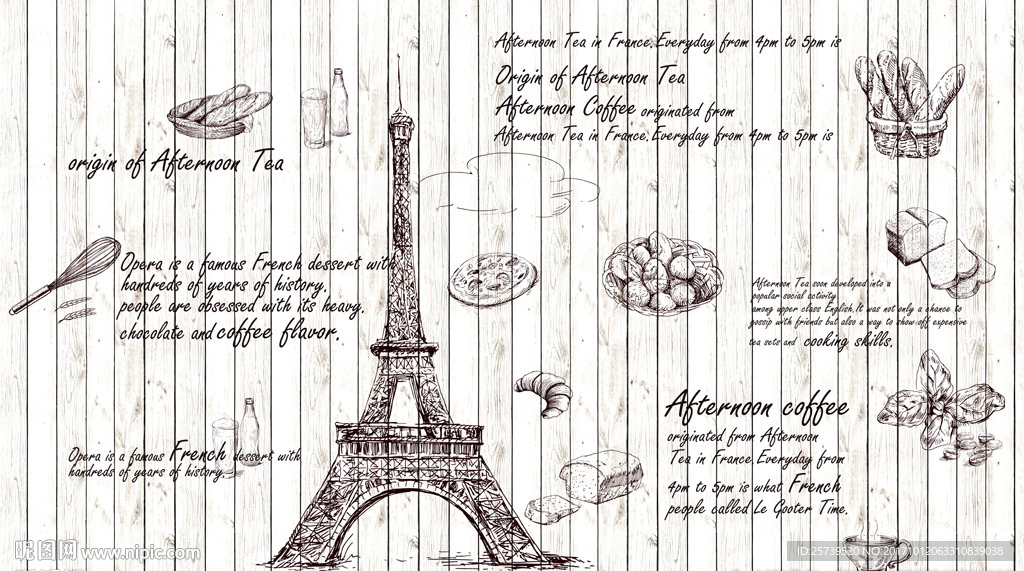 Afternoon Tea in France.Everyday from 4pm to 5pm is
Origin of Afternoon Tea
Afternoon Coffee originated from
Afternoon Tea in France.Everyday from 4pm to 5pm is
origin of Afternoon Tea
Opera is a famous French dessert with
handreds of years of history.
people are obsessed with its heavy.
chocolate and coffee flavor.
Afternoon Tea soon developed into u
popular social activity
among upper class English.It was not only a chance to
gossip with friends but also a way to show-off expensive
tea sets and cooking skills.
Afternoon coffee
originated from Afternoon
Tea in France.Everyday from
4pm to 5pm is what French
people called Le Gooter Time.
Opera is a famous French dessert with
handreds of years of history.
昵图网 www.nipic.com
ID:25739520 NO:20171012063310839038